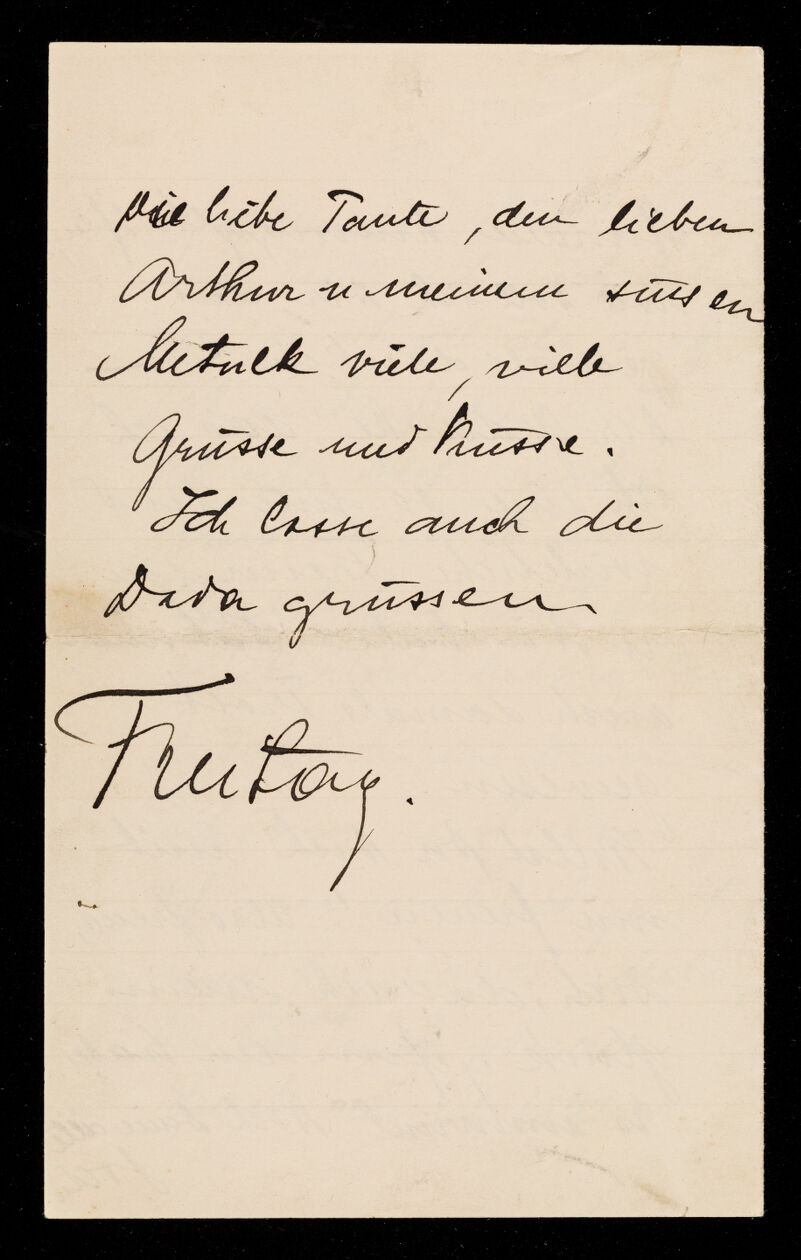 Die liebe Tante, den lieben
Arthur u meinem süssen
viele, viele
Grüsse und Küsse.
Ich lasse auch die
Dada grüssen.
Freitag.